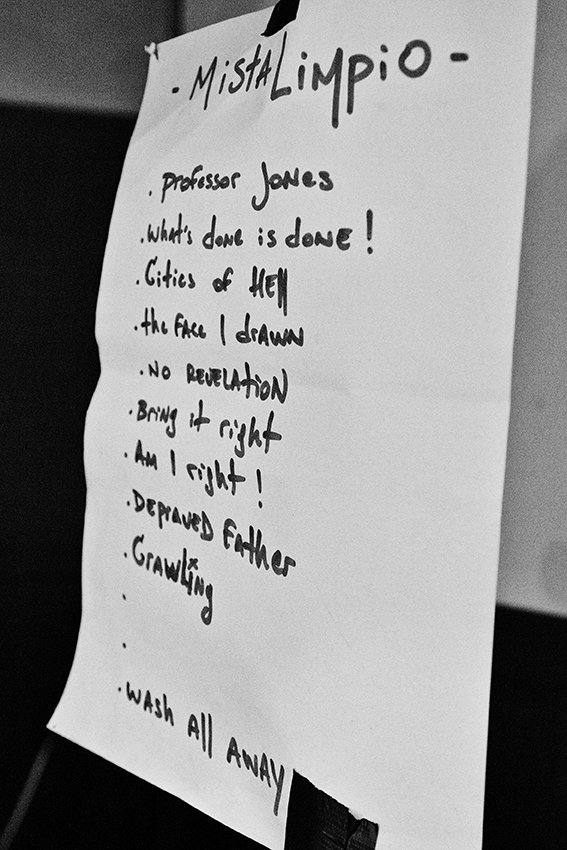 - MistaLimpio -
. Professor Jones
. what's done is done!
. Cities of Hell
. the Face I drawn
. No Revelation
. Bring it right
. Am I right!
. Depraved Father
. Crawling
.
.
. wash all away